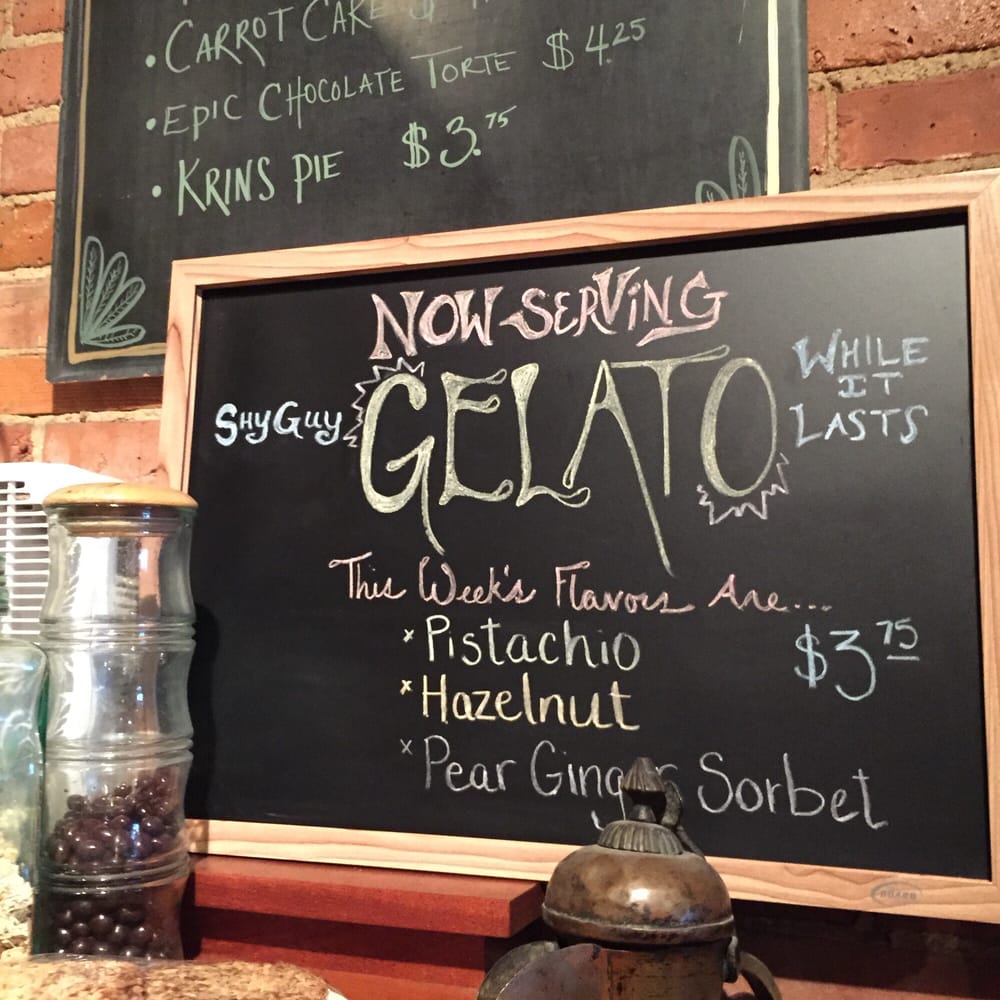 • CARROT CAKE
• EPIC CHOCOLATE TORTE $4.25
• KRINS PIE $3.75
NOW SERVING
SHY GUY GELATO WHILE IT LASTS
This Week's Flavors Are...
× Pistachio $3 75
× Hazelnut
× Pear Ginger Sorbet